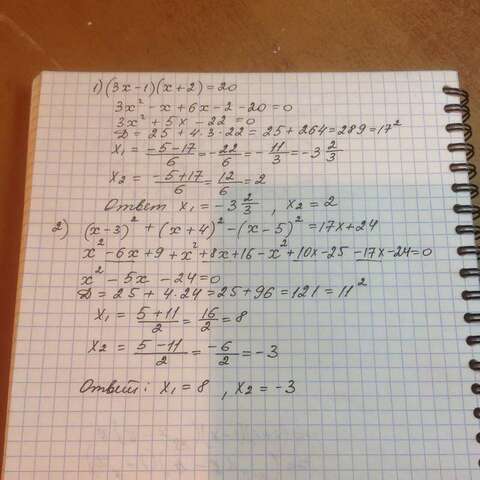 1) (3x-1)(x+2)=20
3x²-x+6x-2-20=0
3x²+5x-22=0
D=25+4·3·22=25+264=289=17²
x₁=(-5-17)/6=-22/6=-11/3=-3 2/3
x₂=(-5+17)/6=12/6=2
Ответ x₁=-3 2/3, x₂=2
2) (x-3)²+(x+4)²-(x-5)²=17x+24
x²-6x+9+x²+8x+16-x²+10x-25-17x-24=0
x²-5x-24=0
D=25+4·24=25+96=121=11²
x₁=(5+11)/2=16/2=8
x₂=(5-11)/2=-6/2=-3
Ответ: x₁=8, x₂=-3